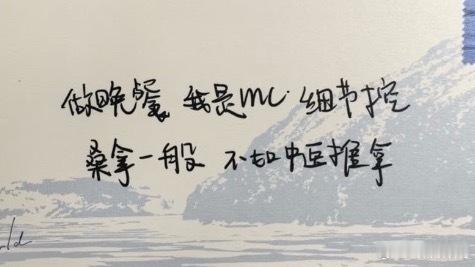 做晚餐 我是MC 细节控
桑拿一般 不如中医推拿
ld